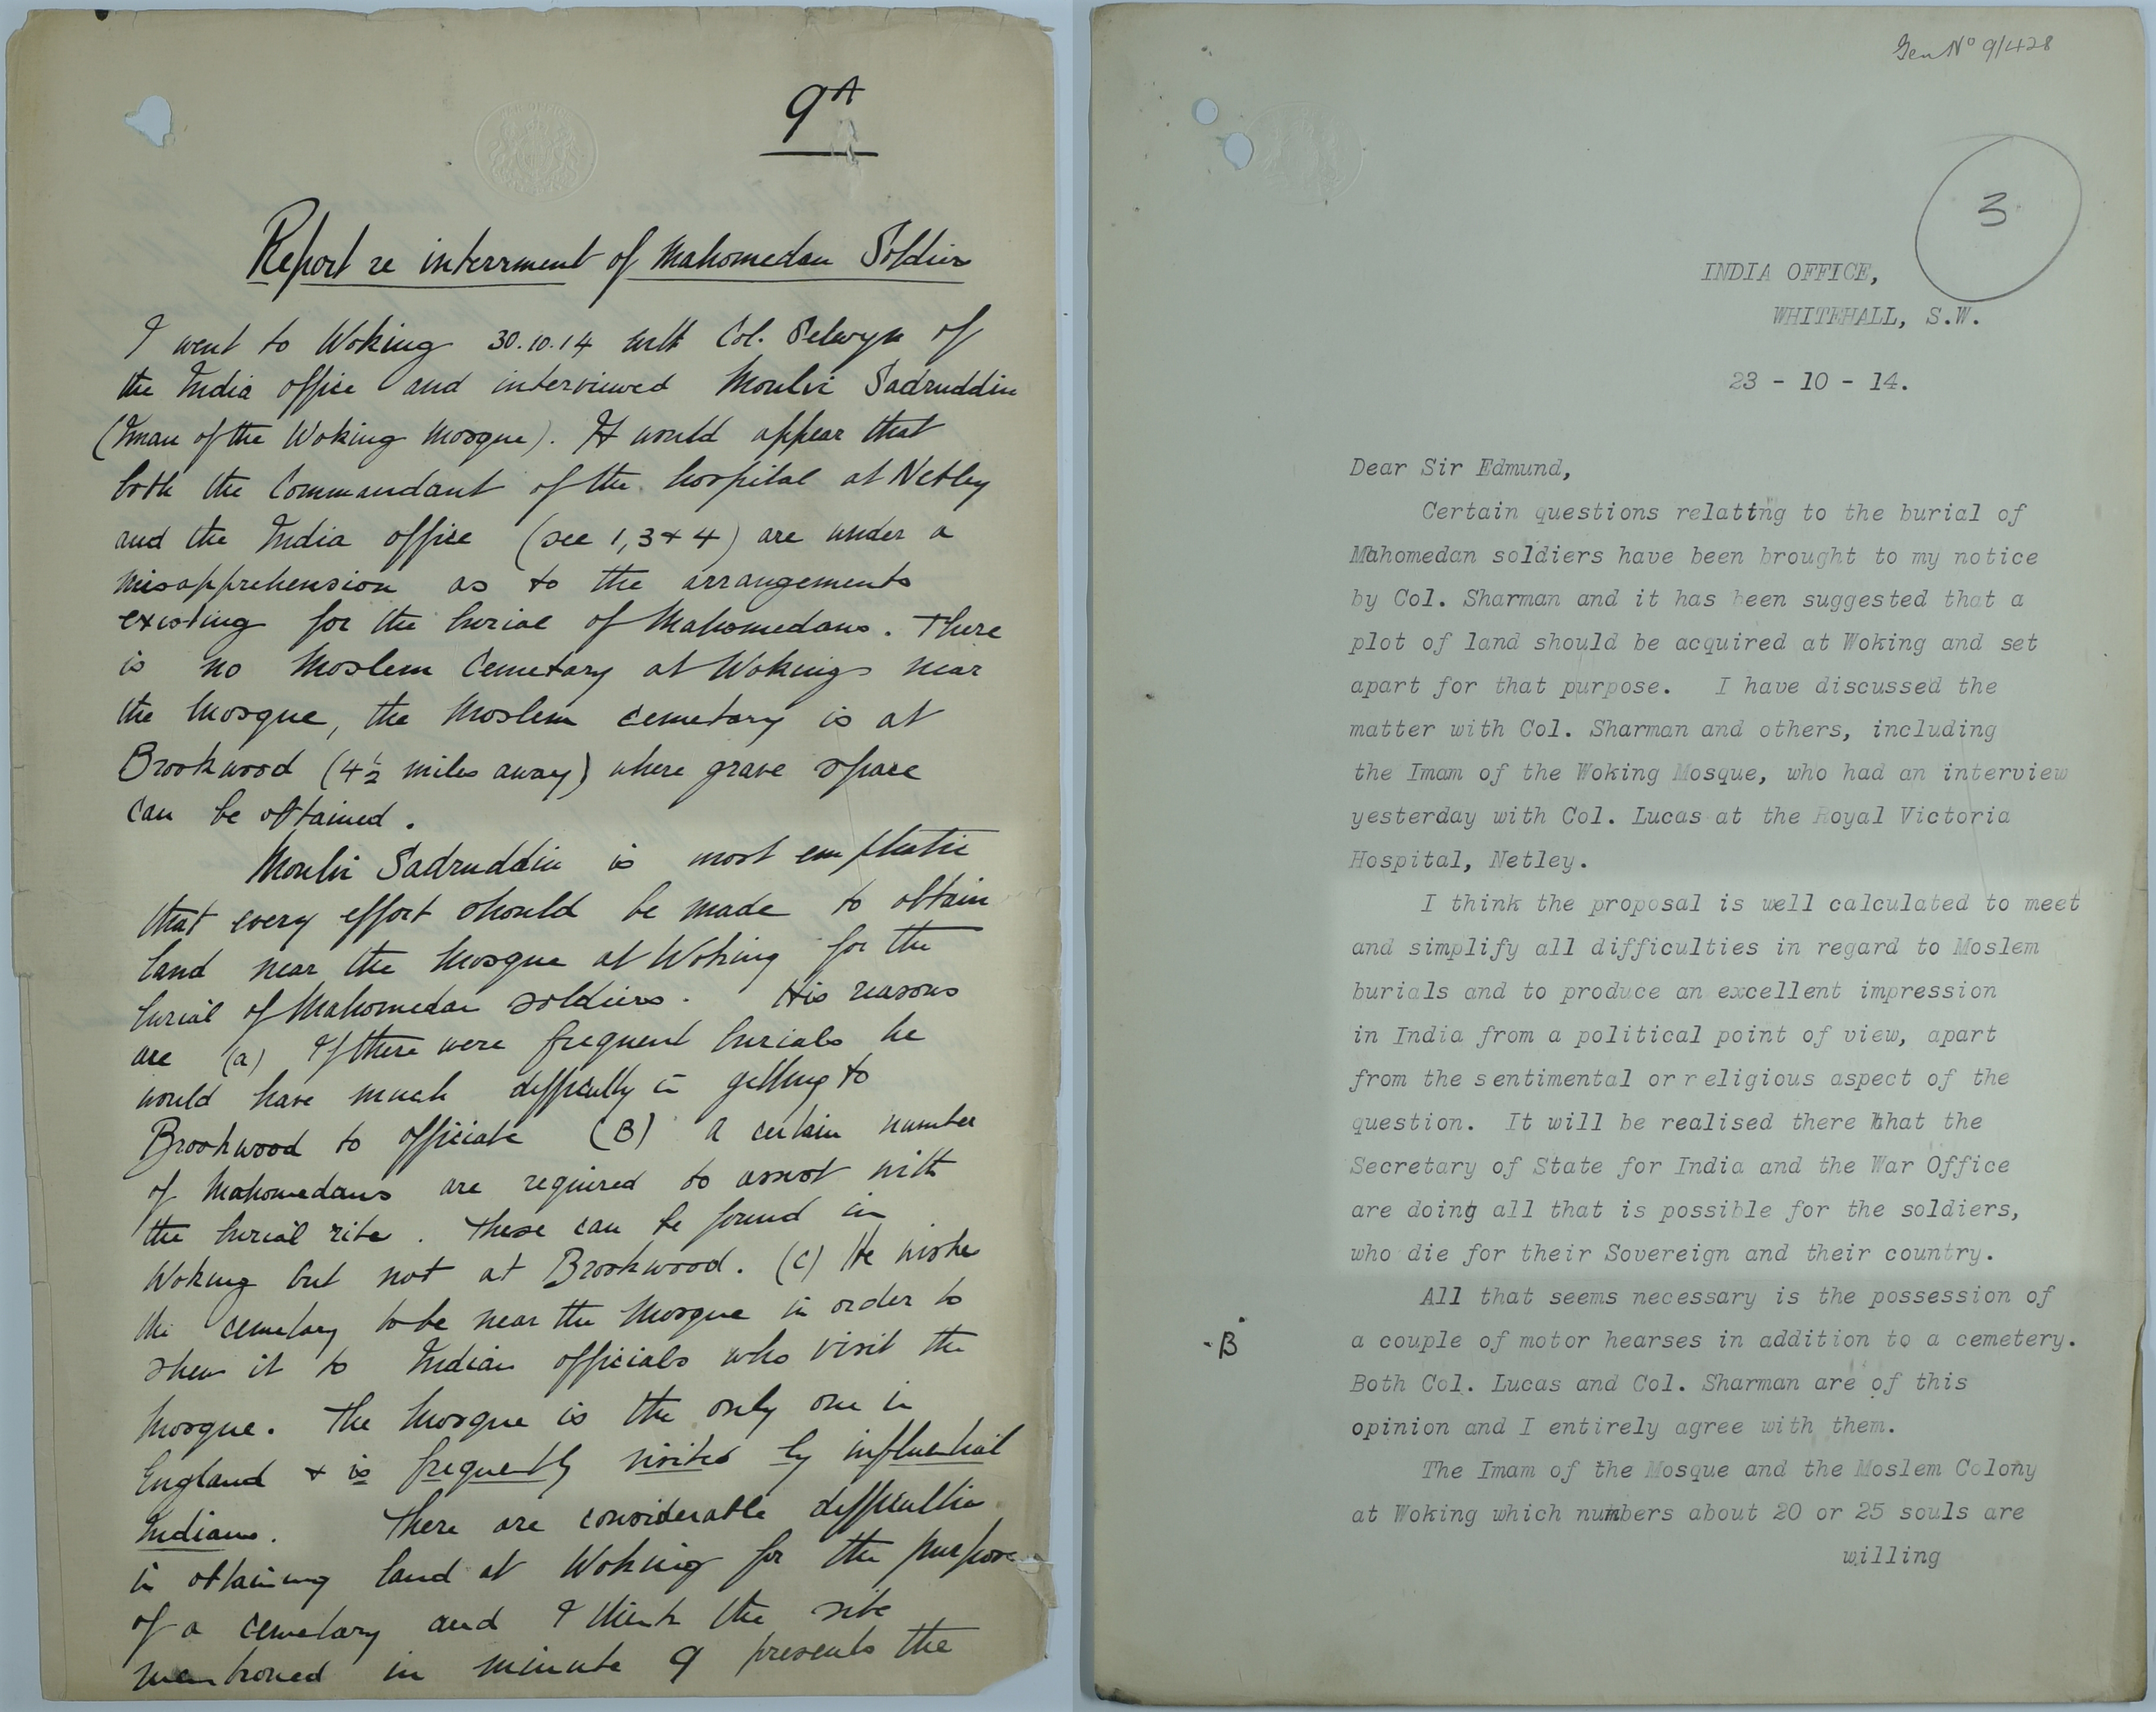 9A
Report re interrment of Mahomedan Soldiers
I went to Woking 30.10.14 with Col. Selwyn of
the India office and interviewed Moulvi Sadruddin
(Iman of the Woking Mosque). It would appear that
both the Commandant of the hospital at Netley
and the India office (see 1, 3 + 4) are under a
misapprehension as to the arrangements
existing for the burial of Mahomedans. There
is no Moslem Cemetary at Woking near
the Mosque, the Moslem cemetary is at
Brookwood (4½ miles away) where grave space
can be obtained.
Moulvi Sadruddin is most emphatic
that every effort should be made to obtain
land near the Mosque at Woking for the
burial of Mahomedan soldiers. His reasons
are (a) If there were frequent burials he
would have much difficulty in getting to
Brookwood to officiate (B) A certain number
of Mahomedans are required to assist with
the burial rite. These can be found in
Woking but not at Brookwood. (C) He wishes
the cemetary to be near the Mosque in order to
shew it to Indian officials who visit the
Mosque. The Mosque is the only one in
England + is frequently visited by influential
Indians. There are considerable difficulties
in obtaining land at Woking for the purpose
of a cemetary and I think the site
mentioned in minute 9 presents the
Gen No 9/428
3
INDIA OFFICE,
WHITEHALL, S.W.
23 - 10 - 14.
Dear Sir Edmund,
Certain questions relating to the burial of
Mahomedan soldiers have been brought to my notice
by Col. Sharman and it has been suggested that a
plot of land should be acquired at Woking and set
apart for that purpose. I have discussed the
matter with Col. Sharman and others, including
the Imam of the Woking Mosque, who had an interview
yesterday with Col. Lucas at the Royal Victoria
Hospital, Netley.
I think the proposal is well calculated to meet
and simplify all difficulties in regard to Moslem
burials and to produce an excellent impression
in India from a political point of view, apart
from the sentimental or religious aspect of the
question. It will be realised there that the
Secretary of State for India and the War Office
are doing all that is possible for the soldiers,
who die for their Sovereign and their country.
All that seems necessary is the possession of
-B
a couple of motor hearses in addition to a cemetery.
Both Col. Lucas and Col. Sharman are of this
opinion and I entirely agree with them.
The Imam of the Mosque and the Moslem Colony
at Woking which numbers about 20 or 25 souls are
willing